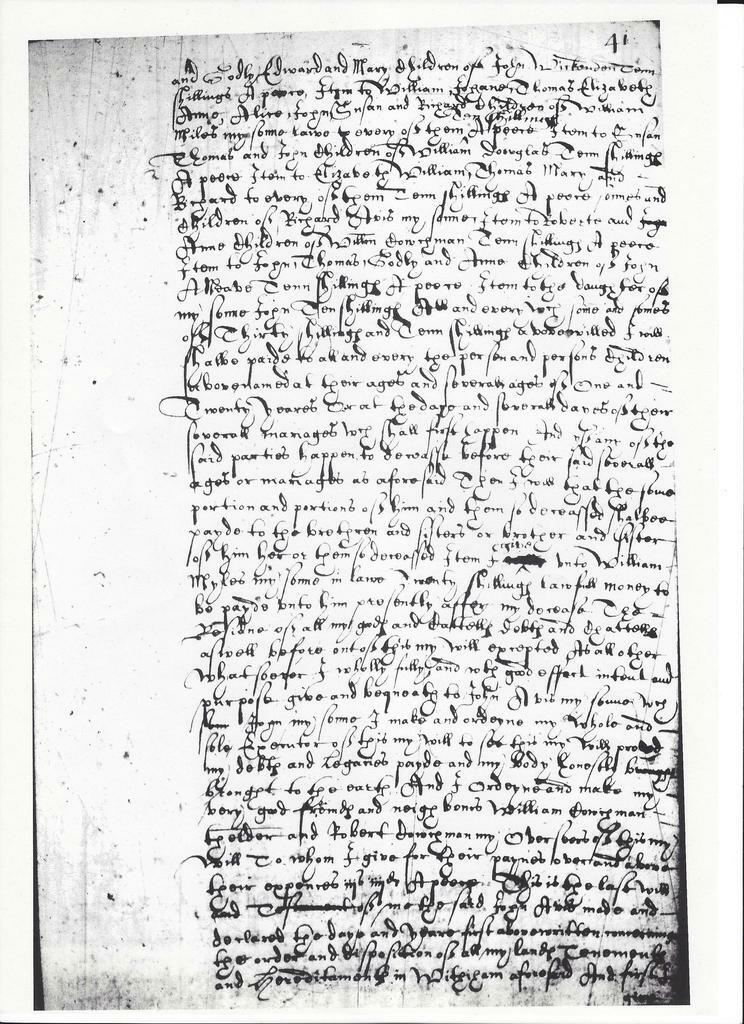 41
and Godly Edward and Mary Children of John Wickenden Tenn
shillings A peece, Item to William Johane Thomas Elizabeth
Anne, Alice, John Susan and Richard Children of William
Tenn shillings
Miles my sonne lawe to every of them A peece Item to Susan
Thomas and John Children of William Dowglas Tenn shillings
A peece Item to Elizabeth William, Thomas Mary and
Richard to every of them Tenn shillings A peece sonnes and
Children of Richard Avis my sonne Item to Roberte and
Anne Children of Willm Dowchman Tenn shillings A peece
Item to John Thomas, Godly and Anne Children of John
A Tenn shillings A peece Item to the daughter of
my sonne John Ten shillings All and every wch some and somes
of Thirty shillings and Tenn shillings I will
shalbe paide to all and every the person and persons Children
abovenamed at their ages and severall ages of One and
Twenty yeares Or at the daye and severall dayes of their
severall mariages wch shall first happen And yf any of the
said parties happen to decease before their said severall
ages or mariages as aforesaid Then I will that the some
portion and portions of him and them so deceassed shalbee
payde to the brethren and sisters or brother and sister
give
of him her or them so deceased Item I unto William
Myles my sonne in lawe Twenty shillings lawfull money to
be payde unto him presently after my decease The
Residue of all my goods and Cattells debts and Chattells
aswell before out of this my will excepted As all other
whatsoever I wholly fully and wth good effect intent and
purpose give and bequeath to John Avis my sonne wch
John my sonne I make and ordeyne my whole and
sole Executor of this my will to see this my will proved
my debts and Legacies payde and my body honestly
brought to the earth And I Ordeyne and make my
very good freinds and neighbours William Dowchman
thelder and Robert Dowchman my Overseers of this my
will To whom I give for their paynes over and above
their expences A peece This is the last will
and Testament of me the said John Avis made and
declared the daye and yeare first abovewritten concerning
the order and disposition of all my lands Tenements
and hereditaments in Withiham aforesaid And first I